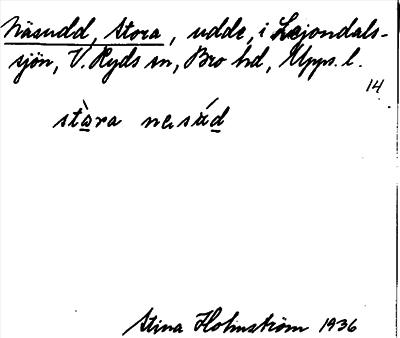 Näsudd, Stora, udde, i Lejondals-
sjön, V. Ryds sn, Bro hd, Upps. l.
14
Stina Holmström 1936